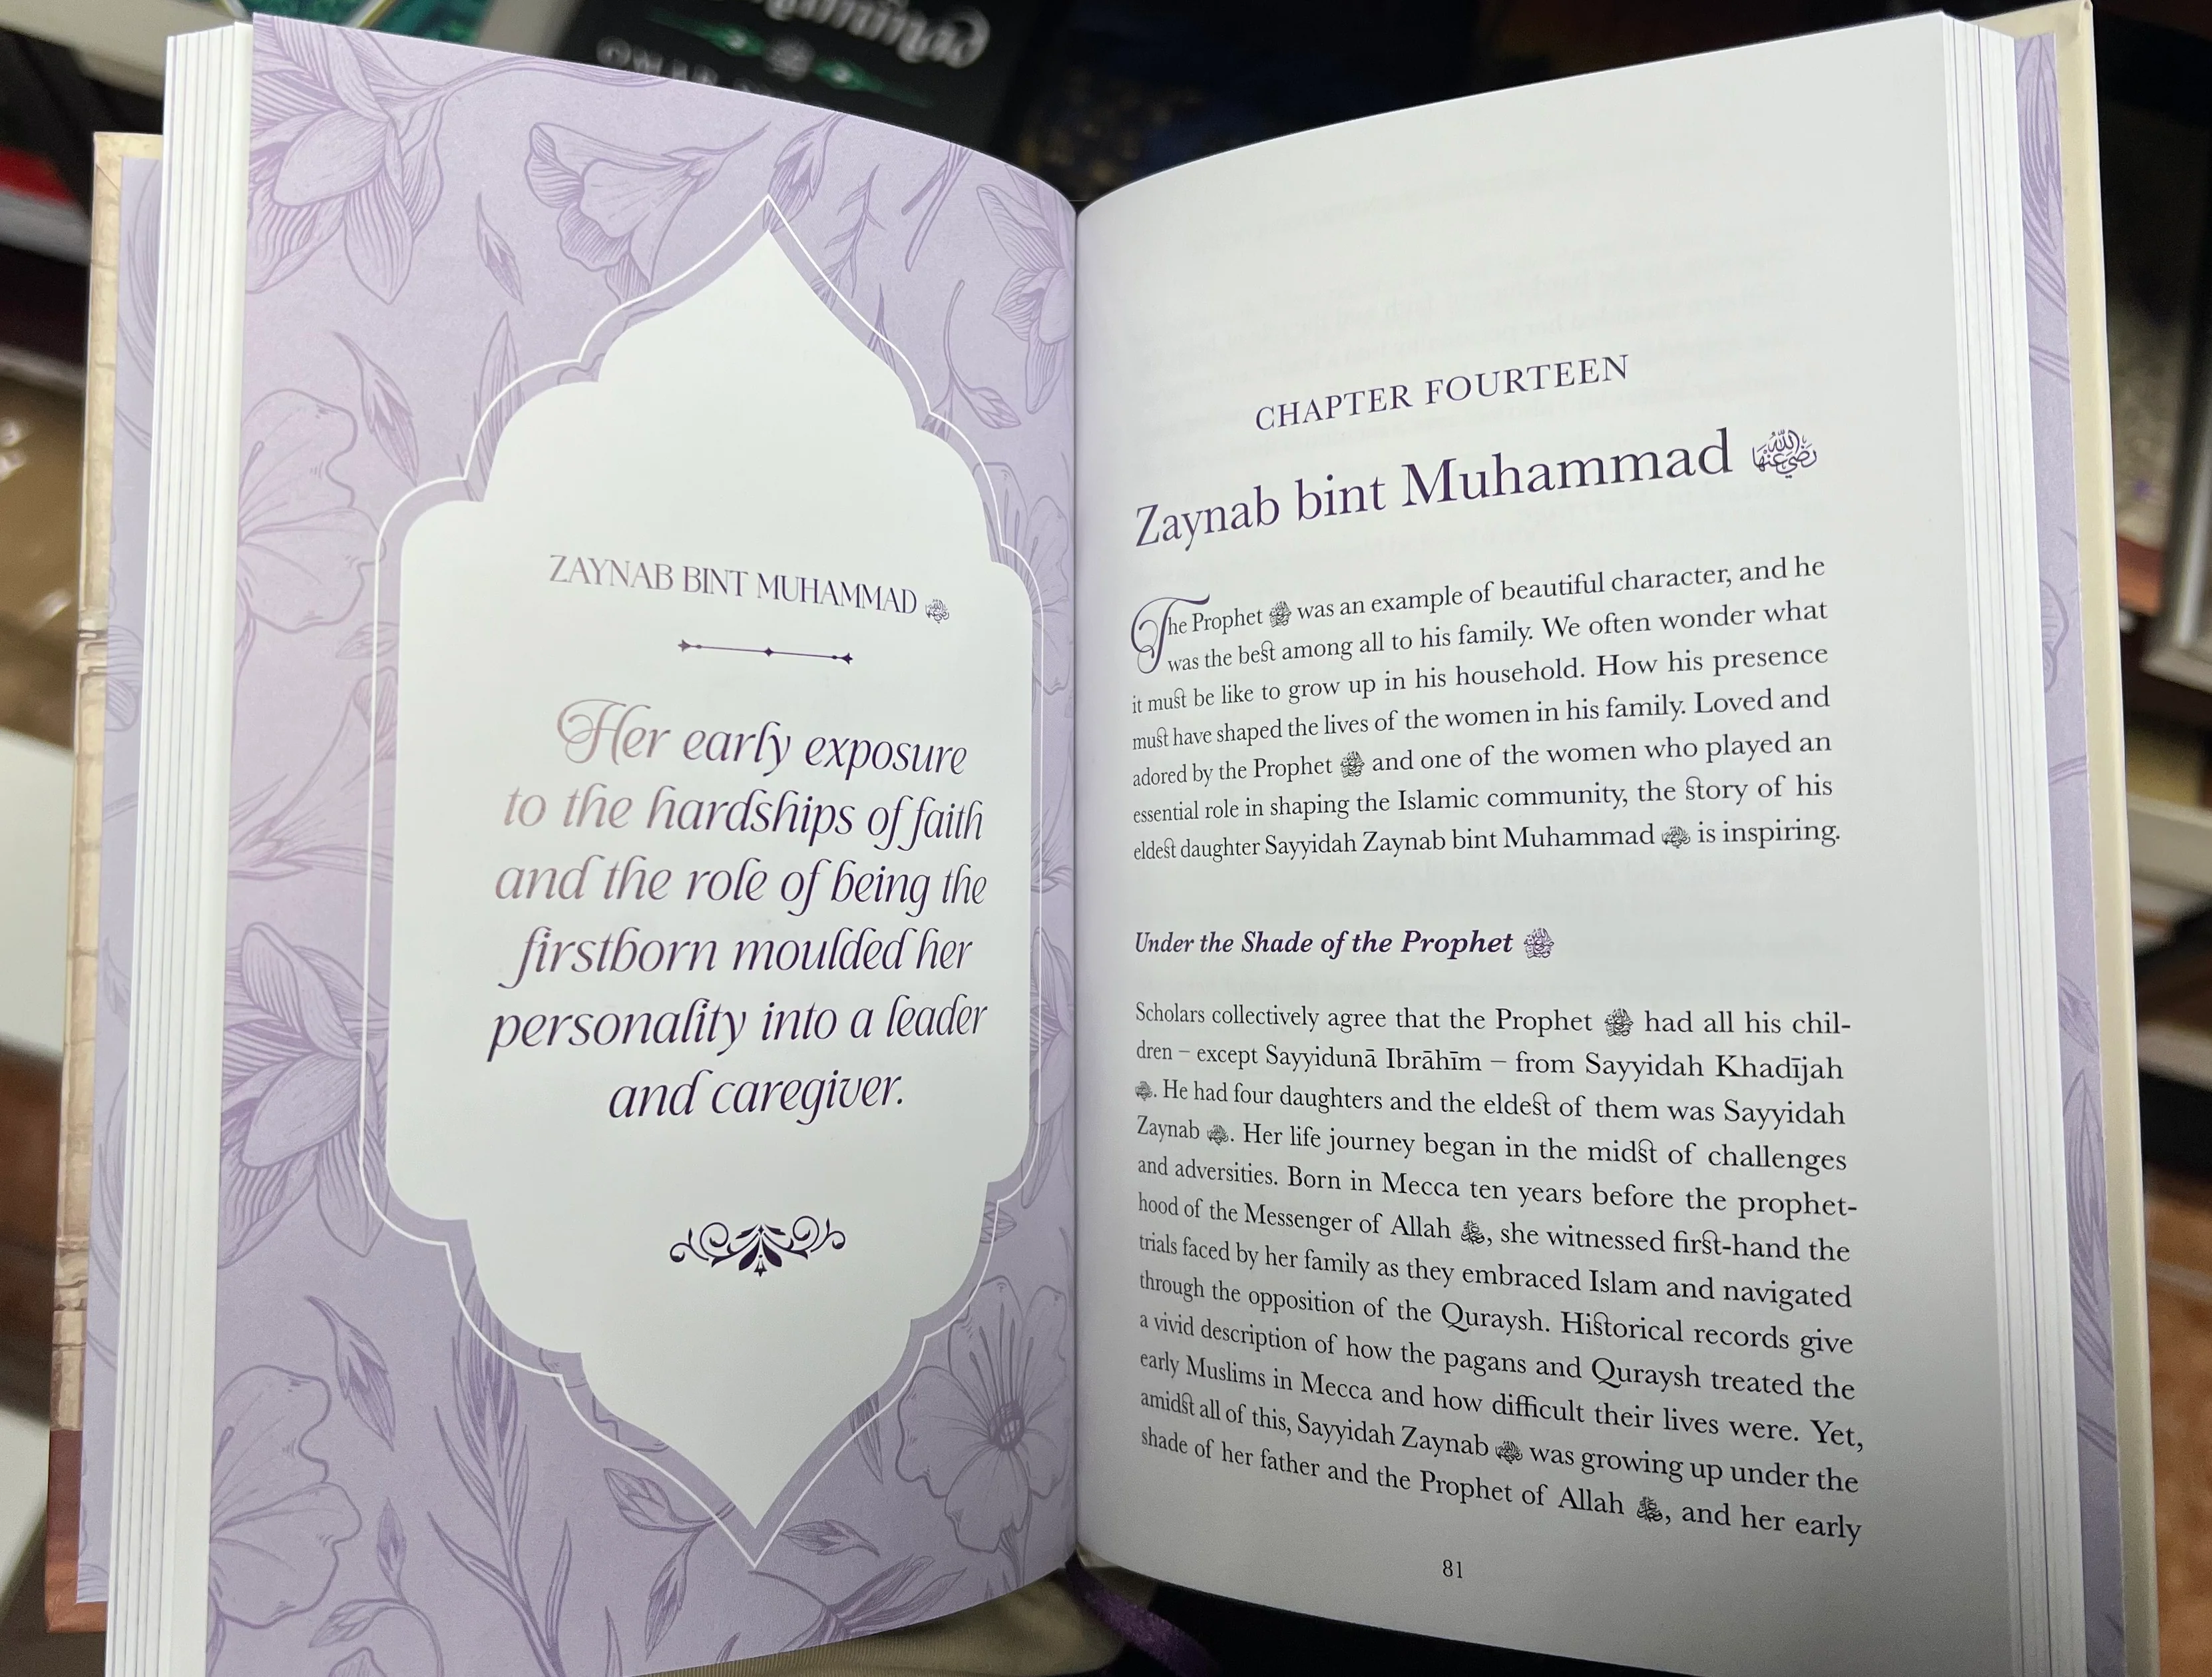 ZAYNAB BINT MUHAMMAD رضي الله عنها
Her early exposure
to the hardships of faith
and the role of being the
firstborn moulded her
personality into a leader
and caregiver.
CHAPTER FOURTEEN
Zaynab bint Muhammad رضي الله عنها
The Prophet ﷺ was an example of beautiful character, and he
was the best among all to his family. We often wonder what
it must be like to grow up in his household. How his presence
must have shaped the lives of the women in his family. Loved and
adored by the Prophet ﷺ and one of the women who played an
essential role in shaping the Islamic community, the story of his
eldest daughter Sayyidah Zaynab bint Muhammad رضي الله عنها is inspiring.
Under the Shade of the Prophet ﷺ
Scholars collectively agree that the Prophet ﷺ had all his chil-
dren – except Sayyidunā Ibrāhīm – from Sayyidah Khadījah
رضي الله عنها. He had four daughters and the eldest of them was Sayyidah
Zaynab رضي الله عنها. Her life journey began in the midst of challenges
and adversities. Born in Mecca ten years before the prophet-
hood of the Messenger of Allah ﷺ, she witnessed first-hand the
trials faced by her family as they embraced Islam and navigated
through the opposition of the Quraysh. Historical records give
a vivid description of how the pagans and Quraysh treated the
early Muslims in Mecca and how difficult their lives were. Yet,
amidst all of this, Sayyidah Zaynab رضي الله عنها was growing up under the
shade of her father and the Prophet of Allah ﷺ, and her early
81